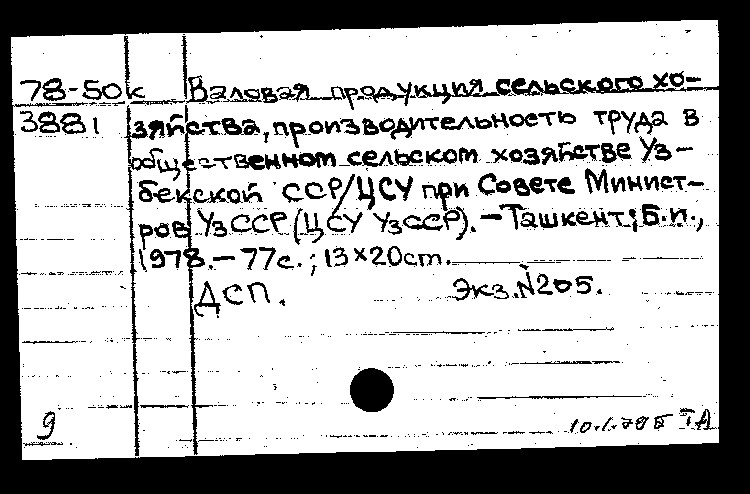 78-50к Валовая продукция сельского хо-
3881 зяйства, производительность труда в
общественном сельском хозяйстве Уз-
бекской ССР/ЦСУ при Совете Минист-
ров УзССР (ЦСУ УзССР). – Ташкент; Б.и.,
1978. – 77с.; 13×20cm.
ДСП. Экз.№205.
9 ТА